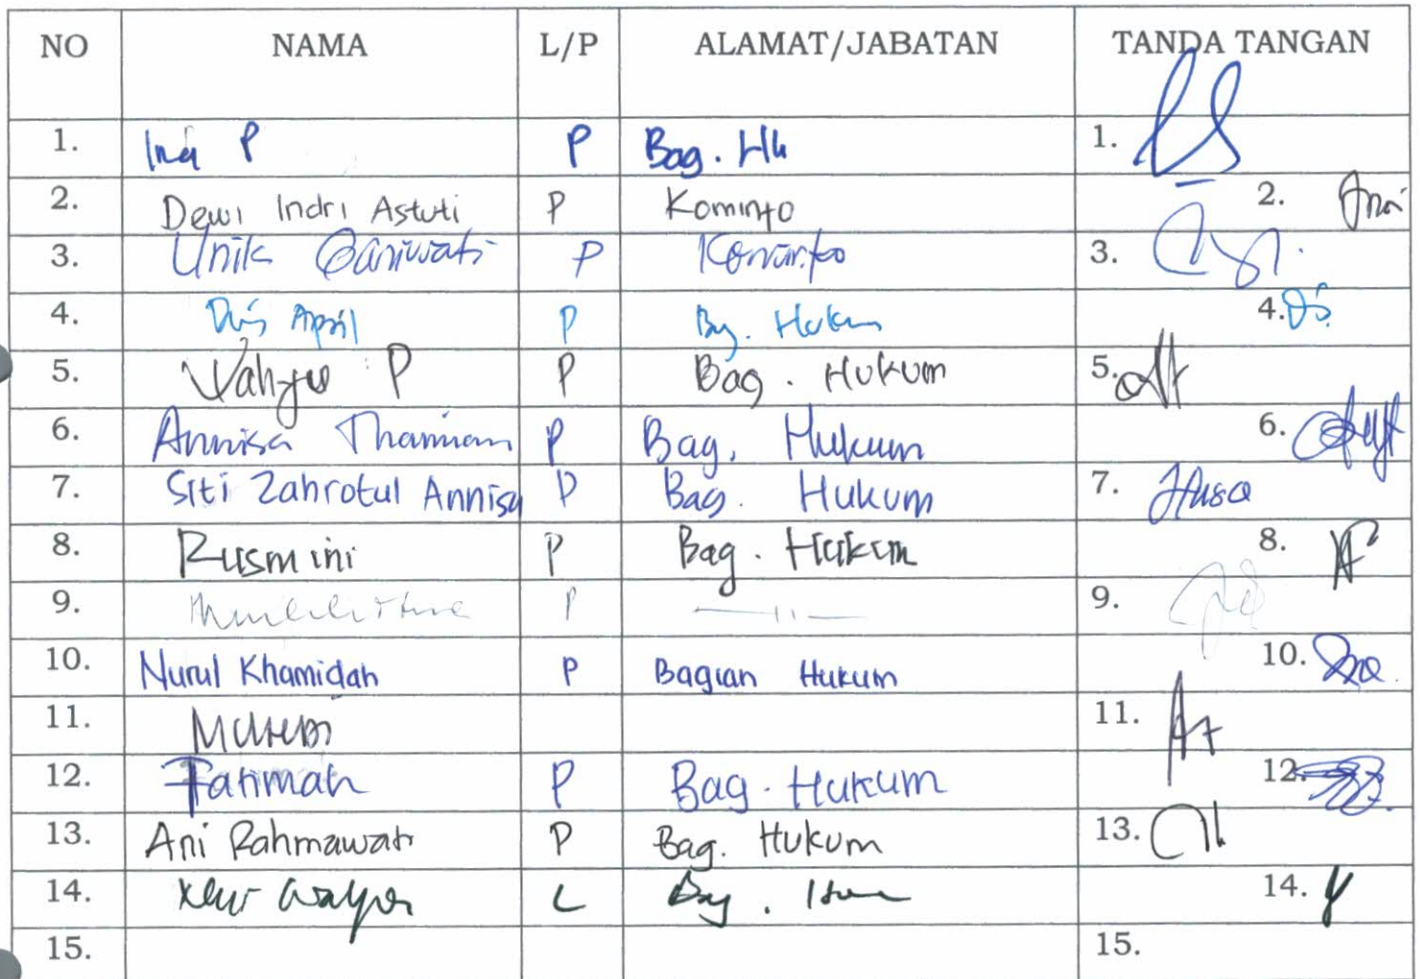 NO NAMA L/P ALAMAT/JABATAN TANDA TANGAN
1. Ina P P Bag. Hk 1.
2. Dewi Indri Astuti P Kominfo 2.
3. Unik P Kominfo 3.
4. April P Bg. Hukum 4.
5. Wahyu P P Bag. Hukum 5.
6. Annisa P Bag. Hukum 6.
7. Siti Zahrotul Annisa P Bag. Hukum 7.
8. Rusmini P Bag. Hukum 8.
9. P —〃— 9.
10. Nurul Khamidah P Bagian Hukum 10.
11. 11.
12. Fatimah P Bag. Hukum 12.
13. Ani Rahmawati P Bag. Hukum 13.
14. L Bag. 14.
15. 15.